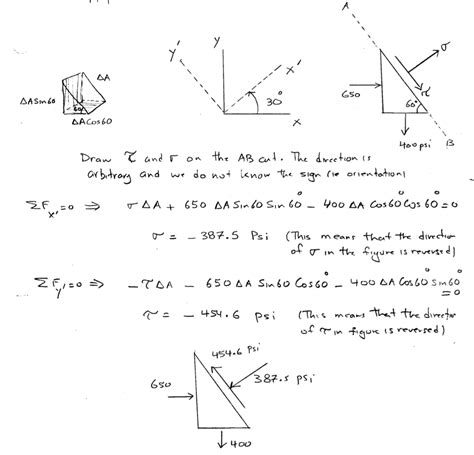 A
y'
y
x'
30°
x
ΔA
ΔASin60
60°
ΔACos60
σ
650
τ
60°
400 psi
B
Draw τ and σ on the AB cut. The direction is
arbitrary and we do not know the sign (ie orientation)
ΣFx'=0 ⇒ σΔA + 650 ΔA Sin60 Sin60° - 400 ΔA Cos60° Cos60° = 0
σ = - 387.5 Psi (This means that the direction
of σ in the figure is reversed)
ΣFy'=0 ⇒ - τΔA - 650 ΔA Sin60 Cos60° - 400 ΔA Cos60° Sin60° = 0
τ = - 454.6 psi (This means that the direction
of τ in figure is reversed)
454.6 Psi
650
387.5 psi
400